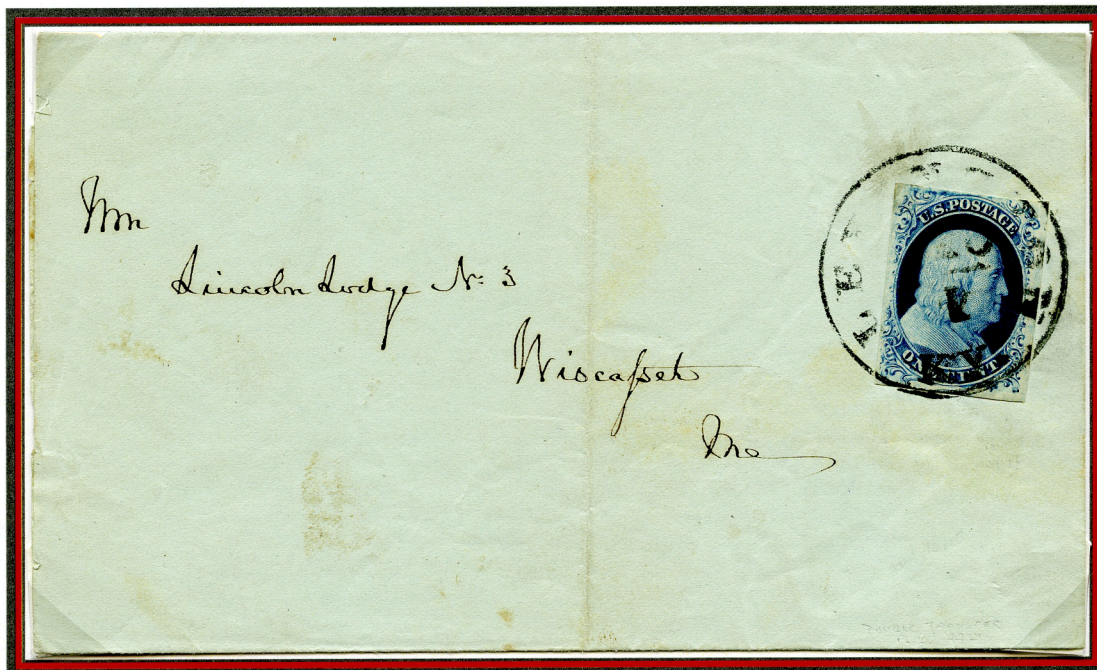 Wm
Lincoln Lodge No. 3
Wiscasset
Me
U.S. POSTAGE
ONE CENT
KY.